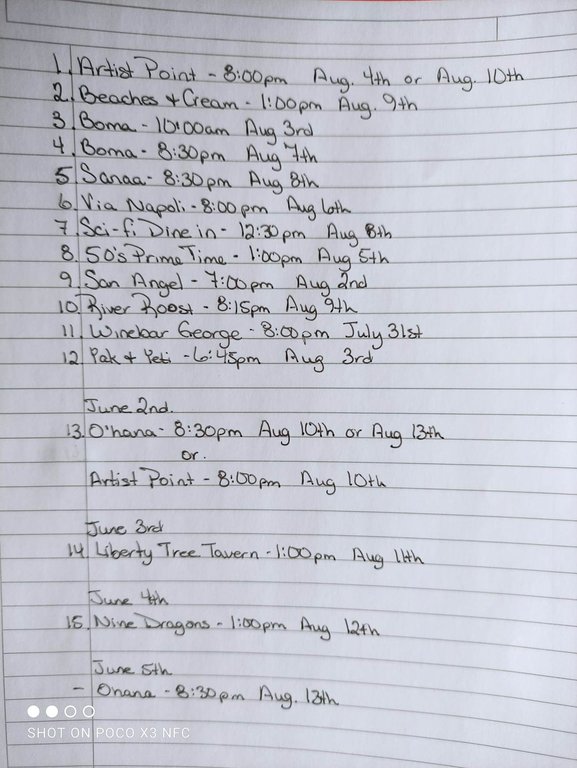 1. Artist Point - 8:00pm Aug. 4th or Aug. 10th
2. Beaches + Cream - 1:00pm Aug. 9th
3 Boma - 10:00am Aug 3rd
4. Boma - 8:30pm Aug 7th
5 Sanaa - 8:30pm Aug 8th
6. Via Napoli - 8:00pm Aug 6th
7 Sci-fi Dine in - 12:30pm Aug 8th
8. 50's Prime Time - 1:00pm Aug 5th
9. San Angel - 7:00pm Aug 2nd
10. River Roost - 8:15pm Aug 9th
11. Winebar George - 8:00pm July 31st
12 Yak + Yeti - 6:45pm Aug 3rd
June 2nd.
13. O'hana - 8:30pm Aug 10th or Aug 13th
or.
Artist Point - 8:00pm Aug 10th
June 3rd
14. Liberty Tree Tavern - 1:00pm Aug 11th
June 4th
15. Nine Dragons - 1:00pm Aug 12th
June 5th
- Ohana - 8:30pm Aug. 13th
SHOT ON POCO X3 NFC